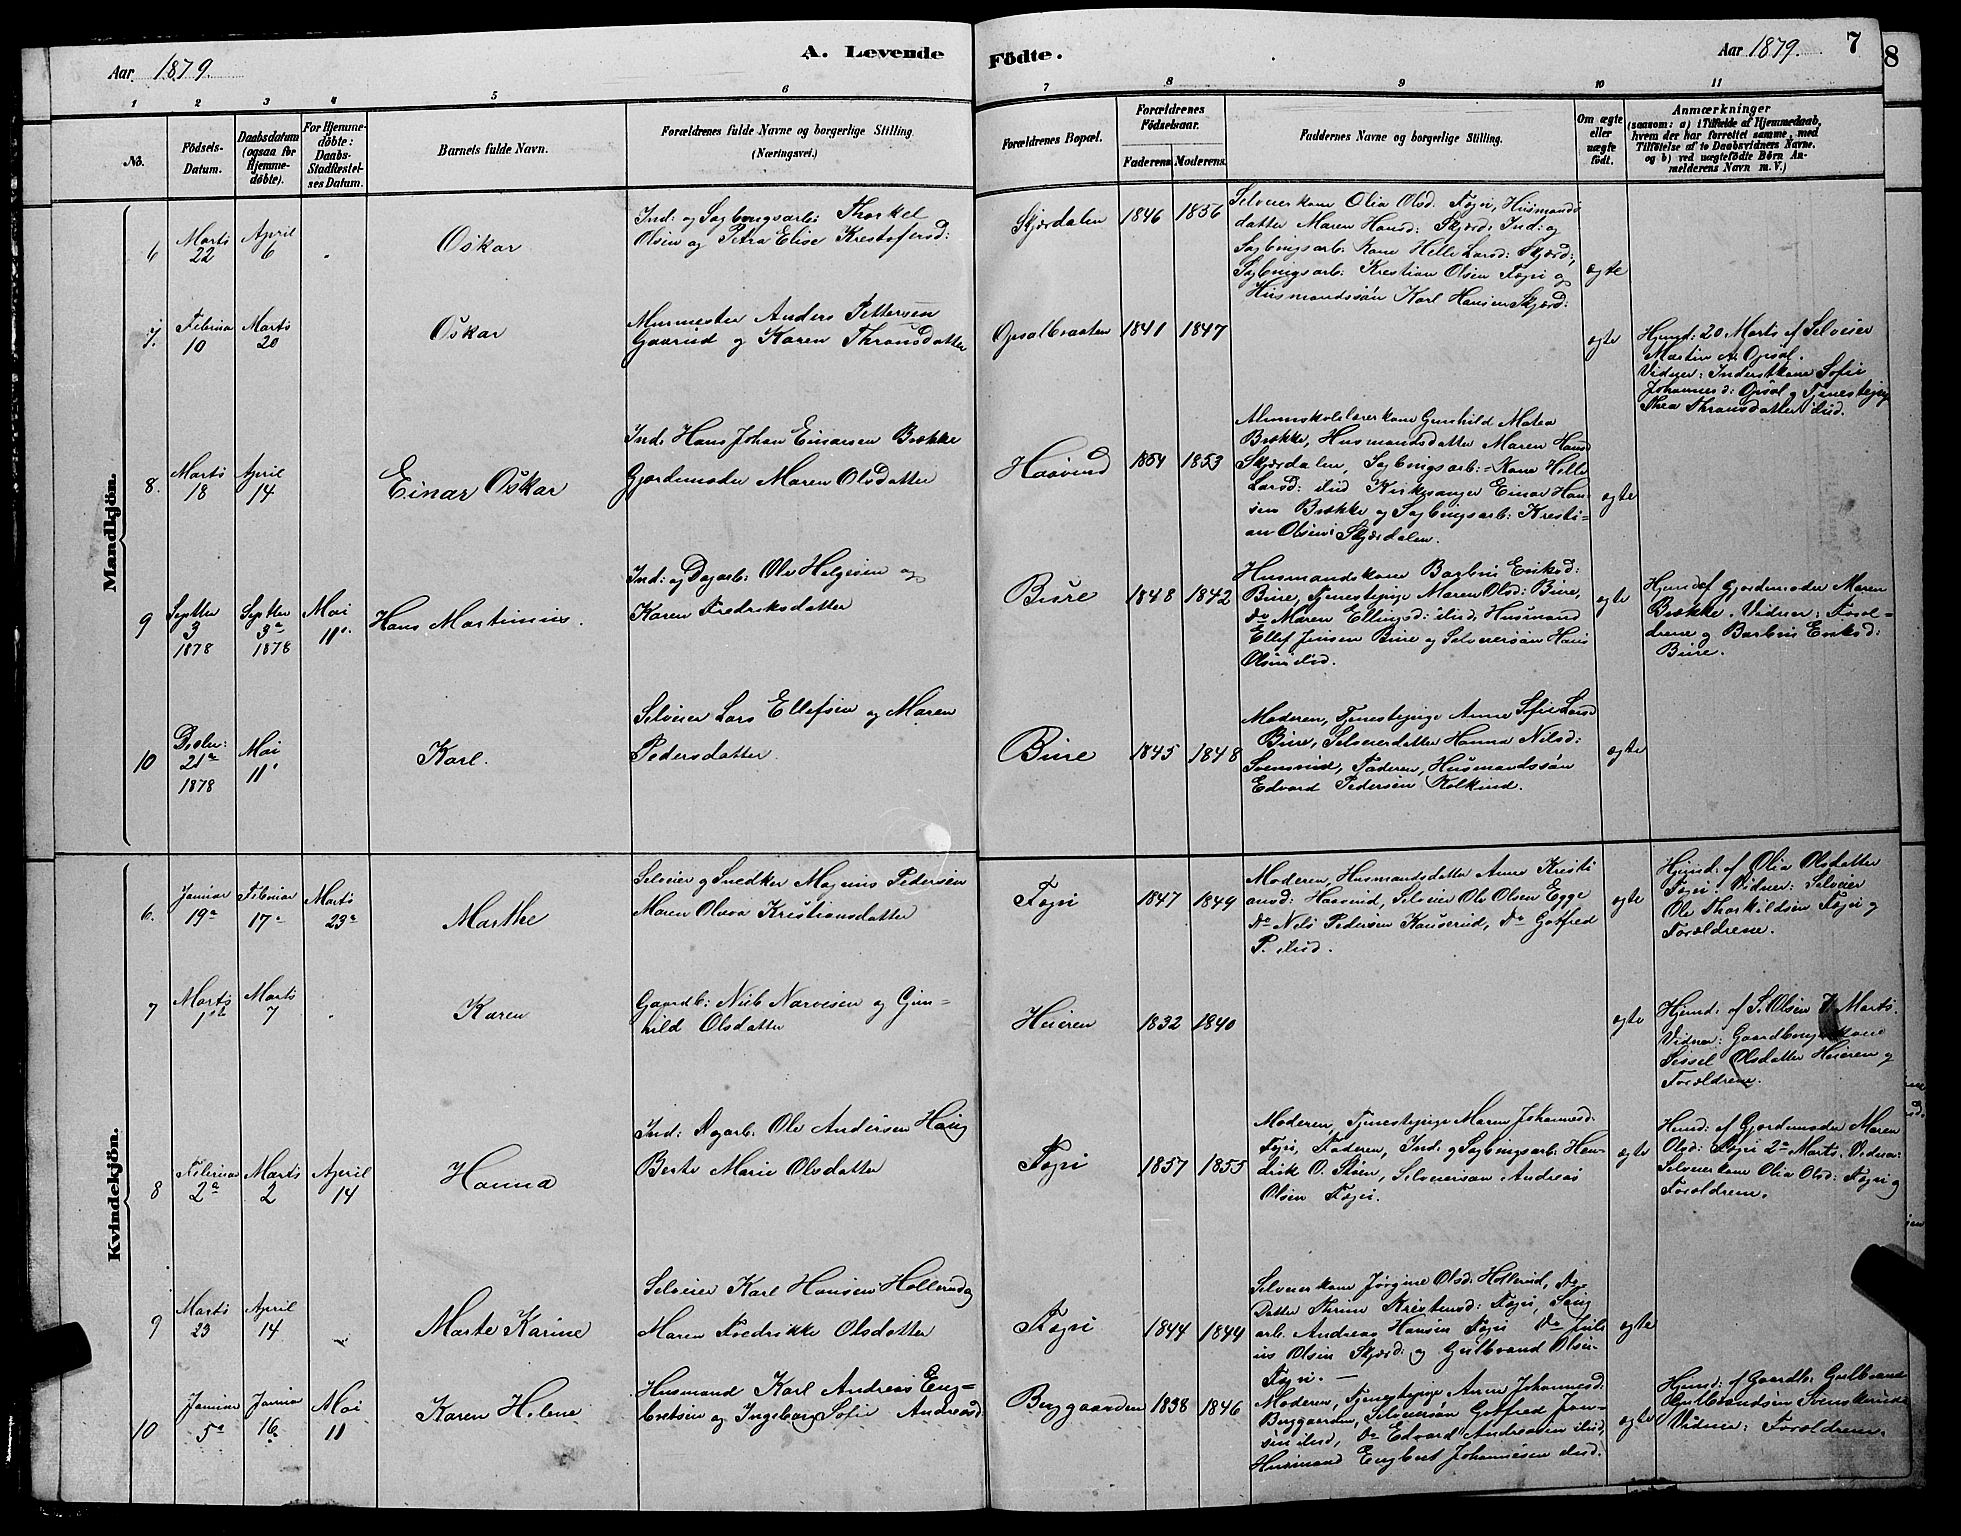 Aar 1879.
A. Levende
Födte.
Aar 1879.
7
8
1
2
3
4
5
6
7
8
9
10
11
No.
Födsels-
Datum.
Daabsdatum
(ogsaa for
Hjemme-
döbte).
For Hjemme-
döbte:
Daabs-
Stadfæstel-
ses Datum.
Barnets fulde Navn.
Forældrenes fulde Navne og borgerlige Stilling.
(Næringsvei.)
Forældrenes Bopæl.
Forældrenes
Födselsaar.
Faderens.
Moderens.
Faddernes Navne og borgerlige Stilling.
Om ægte
eller
uægte
födt.
Anmærkninger
(saasom: a) i Tilfælde af Hjemmedaab,
hvem der har forrettet samme, med
Tilföielse af to Daabsvidners Navne,
og b) ved uægtefödte Börn An-
melderens Navn m. V.)
Mandkjön.
6
Marts
22
April
6
Oskar
Ind: og Sagbrugsarb: Thorkel
Olsen og Petra Elise Kristofersd:
Skjærdalen
1846
1856
Selveierkone Olia Olsd. Fogn, Husmands
datter Maren Hansd: Skjærd: Ind: og
Sagbrugsarb: Kone Helle Larsd: Skjærd:,
Sagbrugsarb: Krestian Olsen Fogn og
Husmandssön Karl Hansen Skjærd:
ægte
7.
Februar
10
Marts
20
Oskar
Murmester Anders Pettersen
Gaarud og Karen Thronsdatter
Opsalbraaten
1841
1847
ægte
Hjemd: 20 Marts af Selveier
Martin A. Opsal.
Vidner: Inderstkone Sofie
Johannesd: Opsal og Tjenestepige
Thea Thronsdatter ibid.
8.
Marts
18
April
14
Einar Oskar
Ind: Hans Johan Einarsen Bække
Gjordemoder Maren Olsdatter
Haavind
1854
1853
Almuskolelærerkone Gunhild Matea
Bække, Husmandsdatter Maren Hansd
Skjærdalen, Sagbrugsarb: Kone Helle
Larsd: ibid Kirkesanger Einar Han-
sen Bække og Sagbrugsarb: Kresti-
an Olsen Skjærdalen.
ægte
9
Septter
3
1878
Septter
3a
1878
Mai
11.
Hans Martinius.
Ind: og Dagarb: Ole Helgesen og
Karen Fredriksdatter
Bure
1848
1842
Husmandskone Barbro Eriksd:
Bure, Tjenestepige Maren Olsd: Bure,
do Maren Ellingsd: ibid, Husmand
Ellef Jensen Bure og Selveiersön Hans
Olsen ibid.
ægte
Hjemd af Gjordemoder Maren
Bække. Vidner: Foræl-
drene og Barbro Eriksd:
Bure.
10
Decbr:
21a
1878
Mai
11
Karl.
Selveier Lars Ellefsen og Maren
Pedersdatter.
Bure
1845
1848
Moderen, Tjenestepige Anne Sofie Larsd
Bure, Selveierdatter Hanna Nilsd:
Svensrud, Faderen, Husmandssön
Edvard Pedersen Kolkind.
ægte
Kvindekjön.
6.
Januar
19a
Februar
17a
Marts
23a
Marthe
Selveier og Snedker Magnus Pedersen
Maren Olava Kristiansdatter
Fogn
1847
1849
Moderen, Husmandsdatter Anne Kristi
ansd: Haavind, Selveier Ole Olsen Egge
Do Nils Pedersen Kauserud, Do Gotfred
P. ibid.
ægte
Hjemd: af Olia Olsdatter
Fogn. Vidner: Selveier
Ole Thorkildsen Fogn og
Forældrene.
7
Marts
1ste
Marts
7
Karen
Gaardb: Niels Narvesen og Gun-
hild Olsdatter
Heieren
1832
1840
ægte
Hjemd: af S. Olsen 7 Marts.
Vidner: Gaardbrugerkone
Sissel Olsdatter Heieren og
Forældrene.
8
Februar
2a
Marts
2
April
14
Hanna
Ind: Dagarb: Ole Andersen Haug
Berte Marie Olsdatter
Fogn
1857
1855
Moderen, Tjenestepige Maren Johannesd:
Fogn, Faderen, Ind: og Sagbrugsarb: Hen-
drik O. Steen, Selveiersön Andreas
Olsen Fogn.
ægte
Hemd: af Gjordemoder Maren
Olsd: Fogn 2a Marts. Vidner:
Selveierkone Olia Olsd: Fogn og
Forældrene.
9
Marts
23
April
14
Marte Karine
Selveier Karl Hansen Hollerud og
Maren Fredrikke Olsdatter
Fogn
1844
1844
Selveierkone Jörgine Olsd: Hollerud, do
Datter Thrine Kristensd: Fogn, Saug
arb. Andreas Hansen Fogn Do Juli
us Olsen Skjærd: og Gulbrand Olsen
Fogn. —
ægte
10
Januar
5a
Januar
16a
Mai
11
Karen Helene
Husmand Karl Andreas Eng-
bretsen og Ingeborg Sofie Andreasd
Byggaarden
1838
1846
Moderen, Tjenestepige Anne Johannesd.
Byggaarden, Selveiersön Gotfred Jan-
sen ibid, Do Edvard Andreasen ibid,
Husmand Engbret Johannesen ibid.
ægte
Hjemd: af Gaardb: Gulbrand
Gulbrandsen Svenskerud
Vidner: Forældrene.